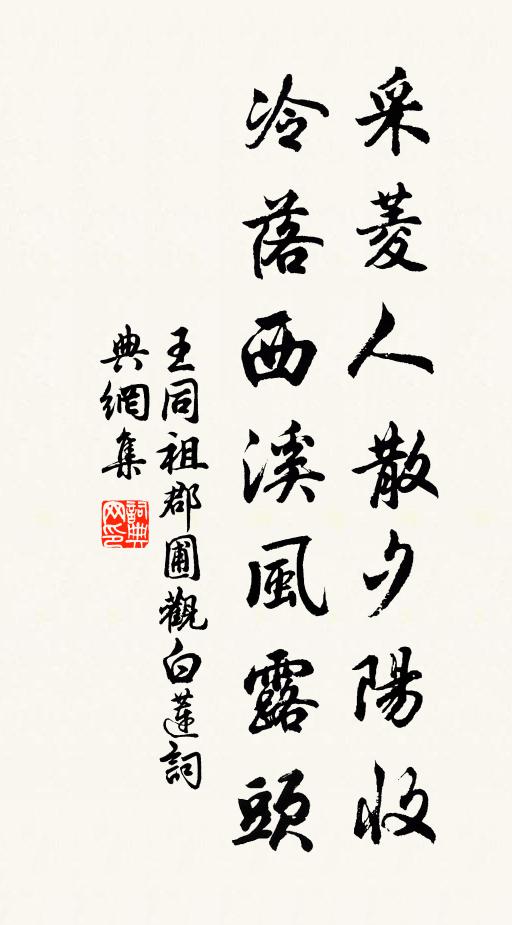 采菱人散夕陽收
冷落西溪風露頭
王同祖郡圃觀白蓮詞
典網集
詞典网印